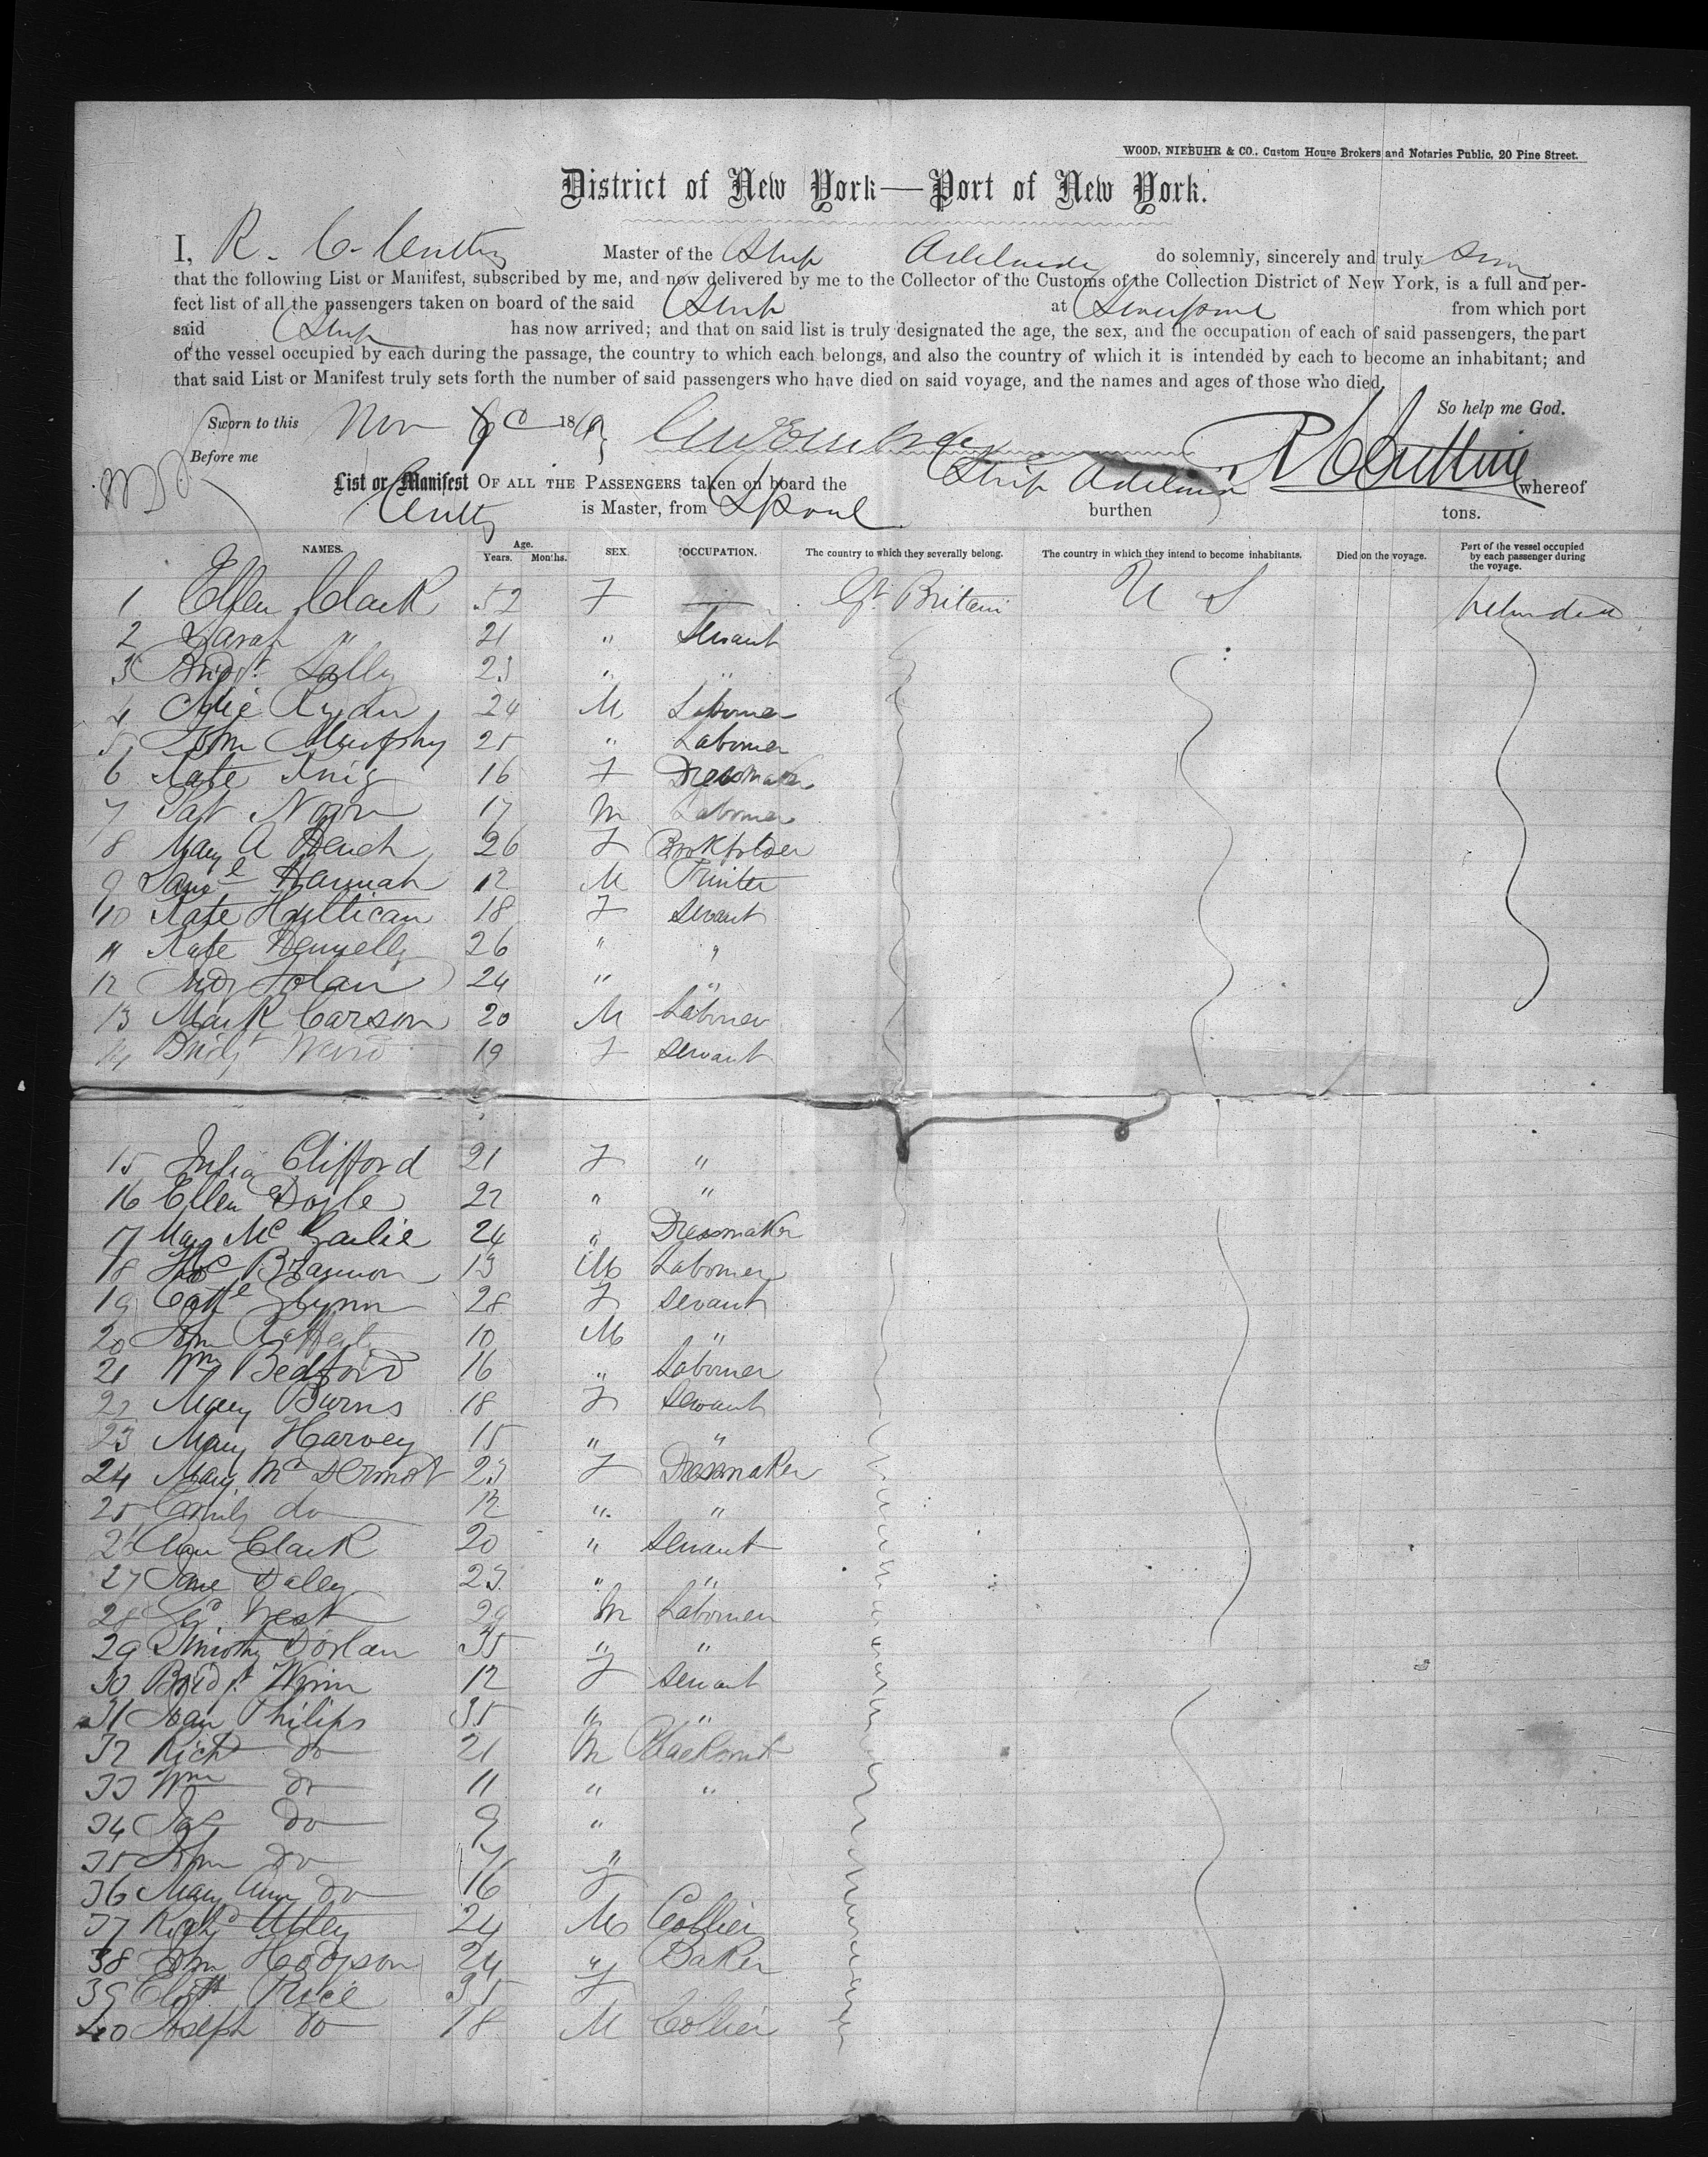 WOOD, NIEBUHR & CO., Custom House Brokers and Notaries Public, 20 Pine Street.
District of New York—Port of New York.
I, R. C. Cutting Master of the Ship Adelaide do solemnly, sincerely and truly
that the following List or Manifest, subscribed by me, and now delivered by me to the Collector of the Customs of the Collection District of New York, is a full and per-
fect list of all the passengers taken on board of the said Ship at Liverpool from which port
said Ship has now arrived; and that on said list is truly designated the age, the sex, and the occupation of each of said passengers, the part
of the vessel occupied by each during the passage, the country to which each belongs, and also the country of which it is intended by each to become an inhabitant; and
that said List or Manifest truly sets forth the number of said passengers who have died on said voyage, and the names and ages of those who died.
So help me God.
Sworn to this Nov 186
Before me
List or Manifest OF ALL THE PASSENGERS taken on board the Ship whereof
is Master, from Lpool burthen tons.
NAMES. Age. Years. Months. SEX. OCCUPATION. The country to which they severally belong. The country in which they intend to become inhabitants. Died on the voyage. Part of the vessel occupied by each passenger during the voyage.
1 Ellen Clark 52 F — Gt Britain U S
2 Sarah " 21 " Servant
3 Bridgt Lally 23 " "
4 Ryan 24 M Labourer
5 John Murphy 25 " Labourer
6 Kate King 16 F Dressmaker
7 Pat 17 M Labourer
8 Mary A 26 F Bookfolder
9 Hannah 12 M Printer
10 Kate 18 F Servant
11 Kate Dennelly 26 " "
12 24 " "
13 Mark Carson 20 M Labourer
14 Bridgt Ward 19 F Servant
15 Julia Clifford 21 F "
16 Ellen Doyle 22 " "
17 Mary Mc 24 " Dressmaker
18 Brannon 13 M Labourer
19 Cathe Glynn 28 F Servant
20 John 10 M "
21 Wm Bedford 16 " Labourer
22 Mary Burns 18 F Servant
23 Mary Harvey 15 " "
24 Mary McDermot 23 F Dressmaker
25 Emily do 12 " "
26 Ann Clark 20 " Servant
27 Jane Daley 23 " "
28 Geo West 29 M Labourer
29 Timothy 35 " "
30 Bridgt Winn 12 F Servant
31 Joan Philips 35 " "
32 Richd do 21 M Blacksmith
33 Wm do 11 " "
34 Jas do 9 "
35 John do "
36 Mary Ann do 16 F
37 Richd Utley 24 M Collier
38 John Hodgson 24 " Baker
39 Elizth Price 35 F
40 Joseph do 18 M Collier